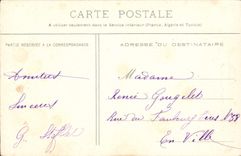 CARTE POSTALE
A utiliser seulement dans le Service intérieur (France, Algérie et Tunisie)
PARTIE RÉSERVÉE A LA CORRESPONDANCE
ADRESSE DU DESTINATAIRE
Amitiés
Sincères
G.
Madame
Renée
Rue du Faubourg
En Ville